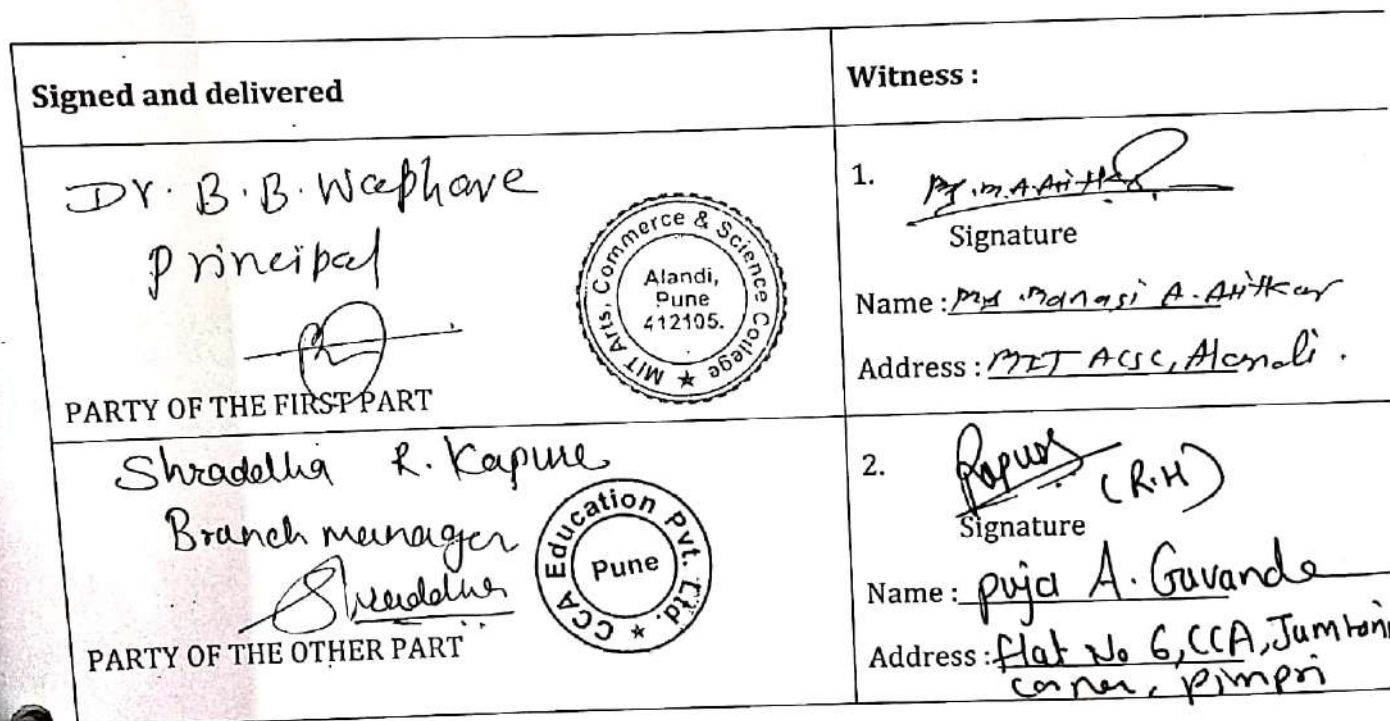 Signed and delivered
Witness :
Dr. B. B. Waphare
Principal
MIT Arts, Commerce & Science College ★
Alandi,
Pune
412105.
PARTY OF THE FIRST PART
1.
Signature
Name : Manasi A. Atitkar
Address : MIT ACSC, Alandi.
Shraddha R. Kapure
Branch manager
Shraddha
CCA Education Pvt. Ltd. ★
Pune
PARTY OF THE OTHER PART
2.
(R.H)
Signature
Name : Puja A. Gavande
Address : flat No 6, CCA, Jumtani
corner, pimpri